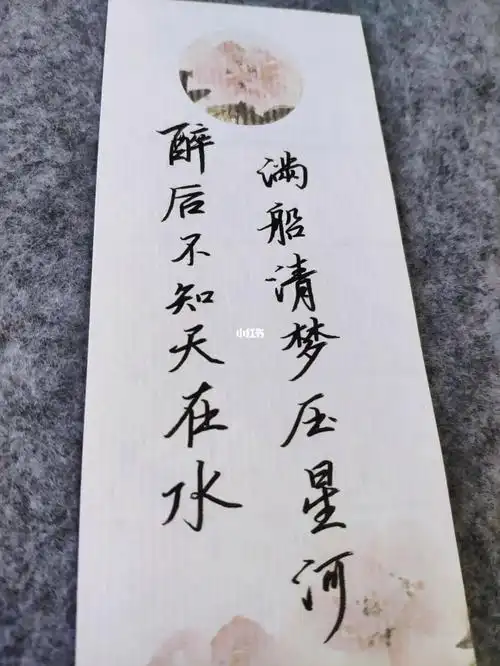 醉后不知天在水
满船清梦压星河
小红书